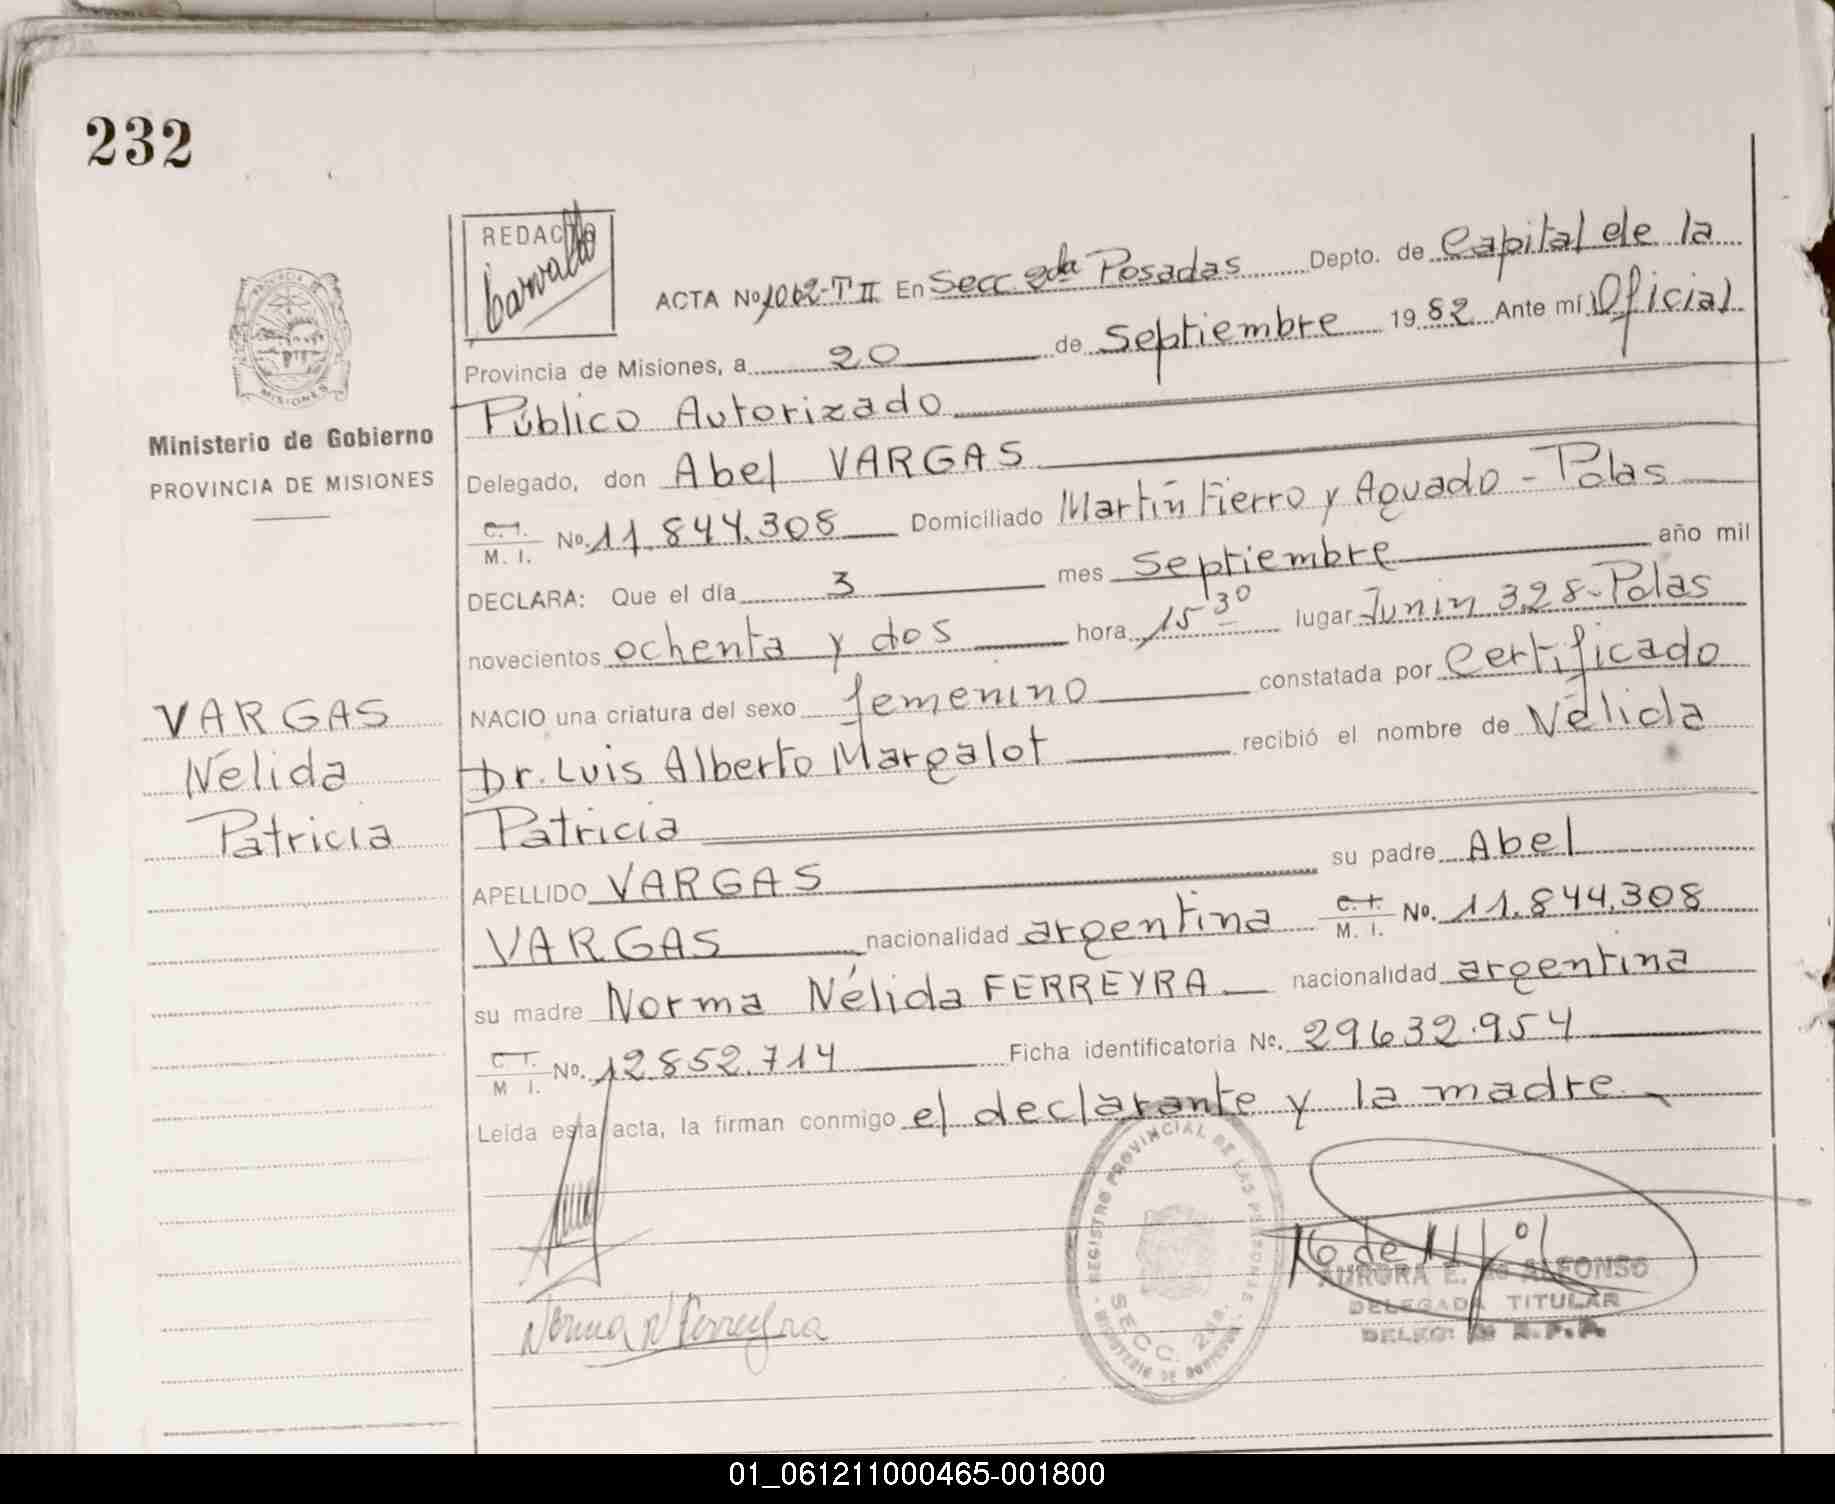 232
REDACTO
Carvallo
ACTA No 1062-T II En Secc 2da Posadas Depto. de Capital de la
Provincia de Misiones, a 20 de Septiembre 1982 Ante mí Oficial
Público Autorizado
PROVINCIA DE
MISIONES
Ministerio de Gobierno
PROVINCIA DE MISIONES
Delegado, don Abel VARGAS
C.I. M. I. No. 11.844.308 Domiciliado Martín Fierro y Aguado - Pdas
DECLARA: Que el día 3 mes Septiembre año mil
novecientos ochenta y dos hora 15 30 lugar Junin 328-Pdas
NACIO una criatura del sexo femenino constatada por Certificado
Dr. Luis Alberto Margalot recibió el nombre de Nélida
Patricia
VARGAS
Nélida
Patricia
APELLIDO VARGAS su padre Abel
VARGAS nacionalidad argentina C.I. M. I. No. 11.844.308
su madre Norma Nélida FERREYRA nacionalidad argentina
C.I. M. I. No. 12852.714 Ficha identificatoria No. 29632.954
Leída esta acta, la firman conmigo el declarante y la madre
REGISTRO PROVINCIAL DE LAS PERSONAS
SECC. 2da.
MINISTERIO DE GOBIERNO
16 de 11/01
AURORA E. de ALFONSO
DELEGADA TITULAR
Norma N Ferreyra
01_061211000465-001800